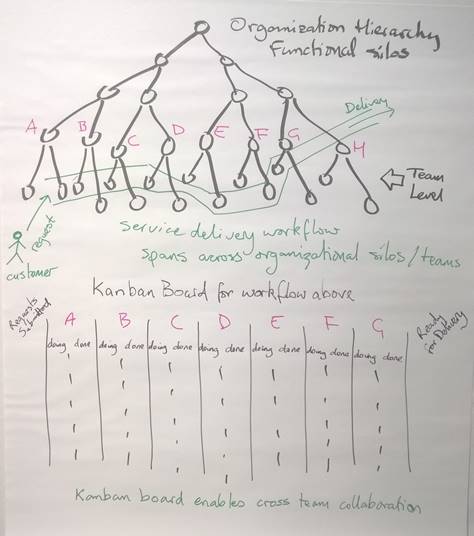 Organization Hierarchy
Functional silos
Delivery
A B C D E F G H
Team
Level
request
customer
Service delivery workflow
spans across organizational silos/teams
Kanban Board for workflow above
Requests
Submitted
A B C D E F G
Ready
for Delivery
doing done doing done doing done doing done doing done doing done doing done
Kanban board enables cross team collaboration